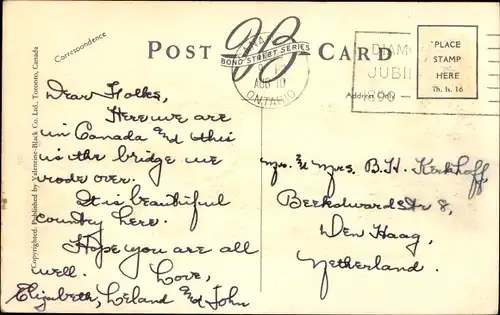 Correspondence
POST CARD
BOND STREET SERIES
AUG 10
ONTARIO
DIAMO
JUBIL
Address Only
PLACE
STAMP
HERE
7h. ls. 16
Copyrighted. Published by Valentine-Black Co. Ltd., Toronto, Canada
Dear Folkes,
Here we are
in Canada and this
is the bridge we
rode over.
It is beautiful
country here.
Hope you are all
well. Love,
Elizabeth, Leland and John
Mr. & Mrs. B.H. Kerkhoff
Beeklaan
Den Haag,
Netherland.